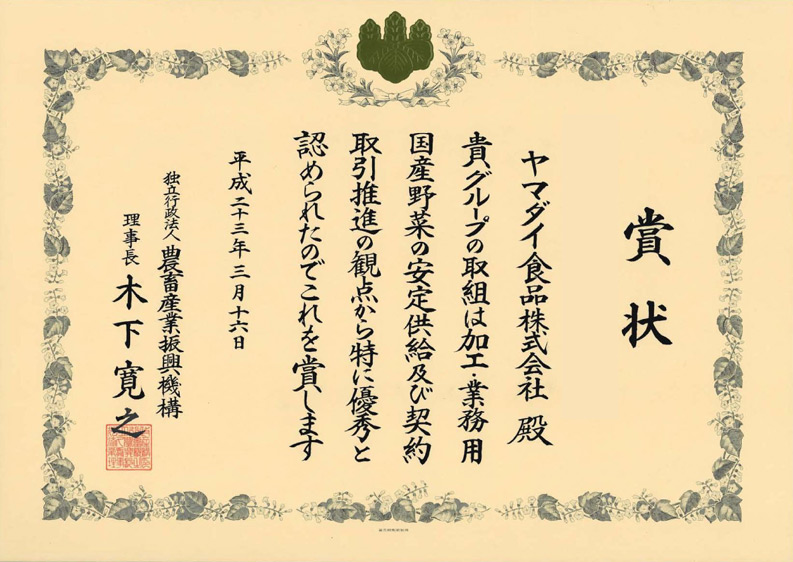 賞状
ヤマダイ食品株式会社 殿
貴グループの取組は加工・業務用
国産野菜の安定供給及び契約
取引推進の観点から特に優秀と
認められたのでこれを賞します
平成二十三年三月十六日
独立行政法人 農畜産業振興機構
理事長 木下寛之